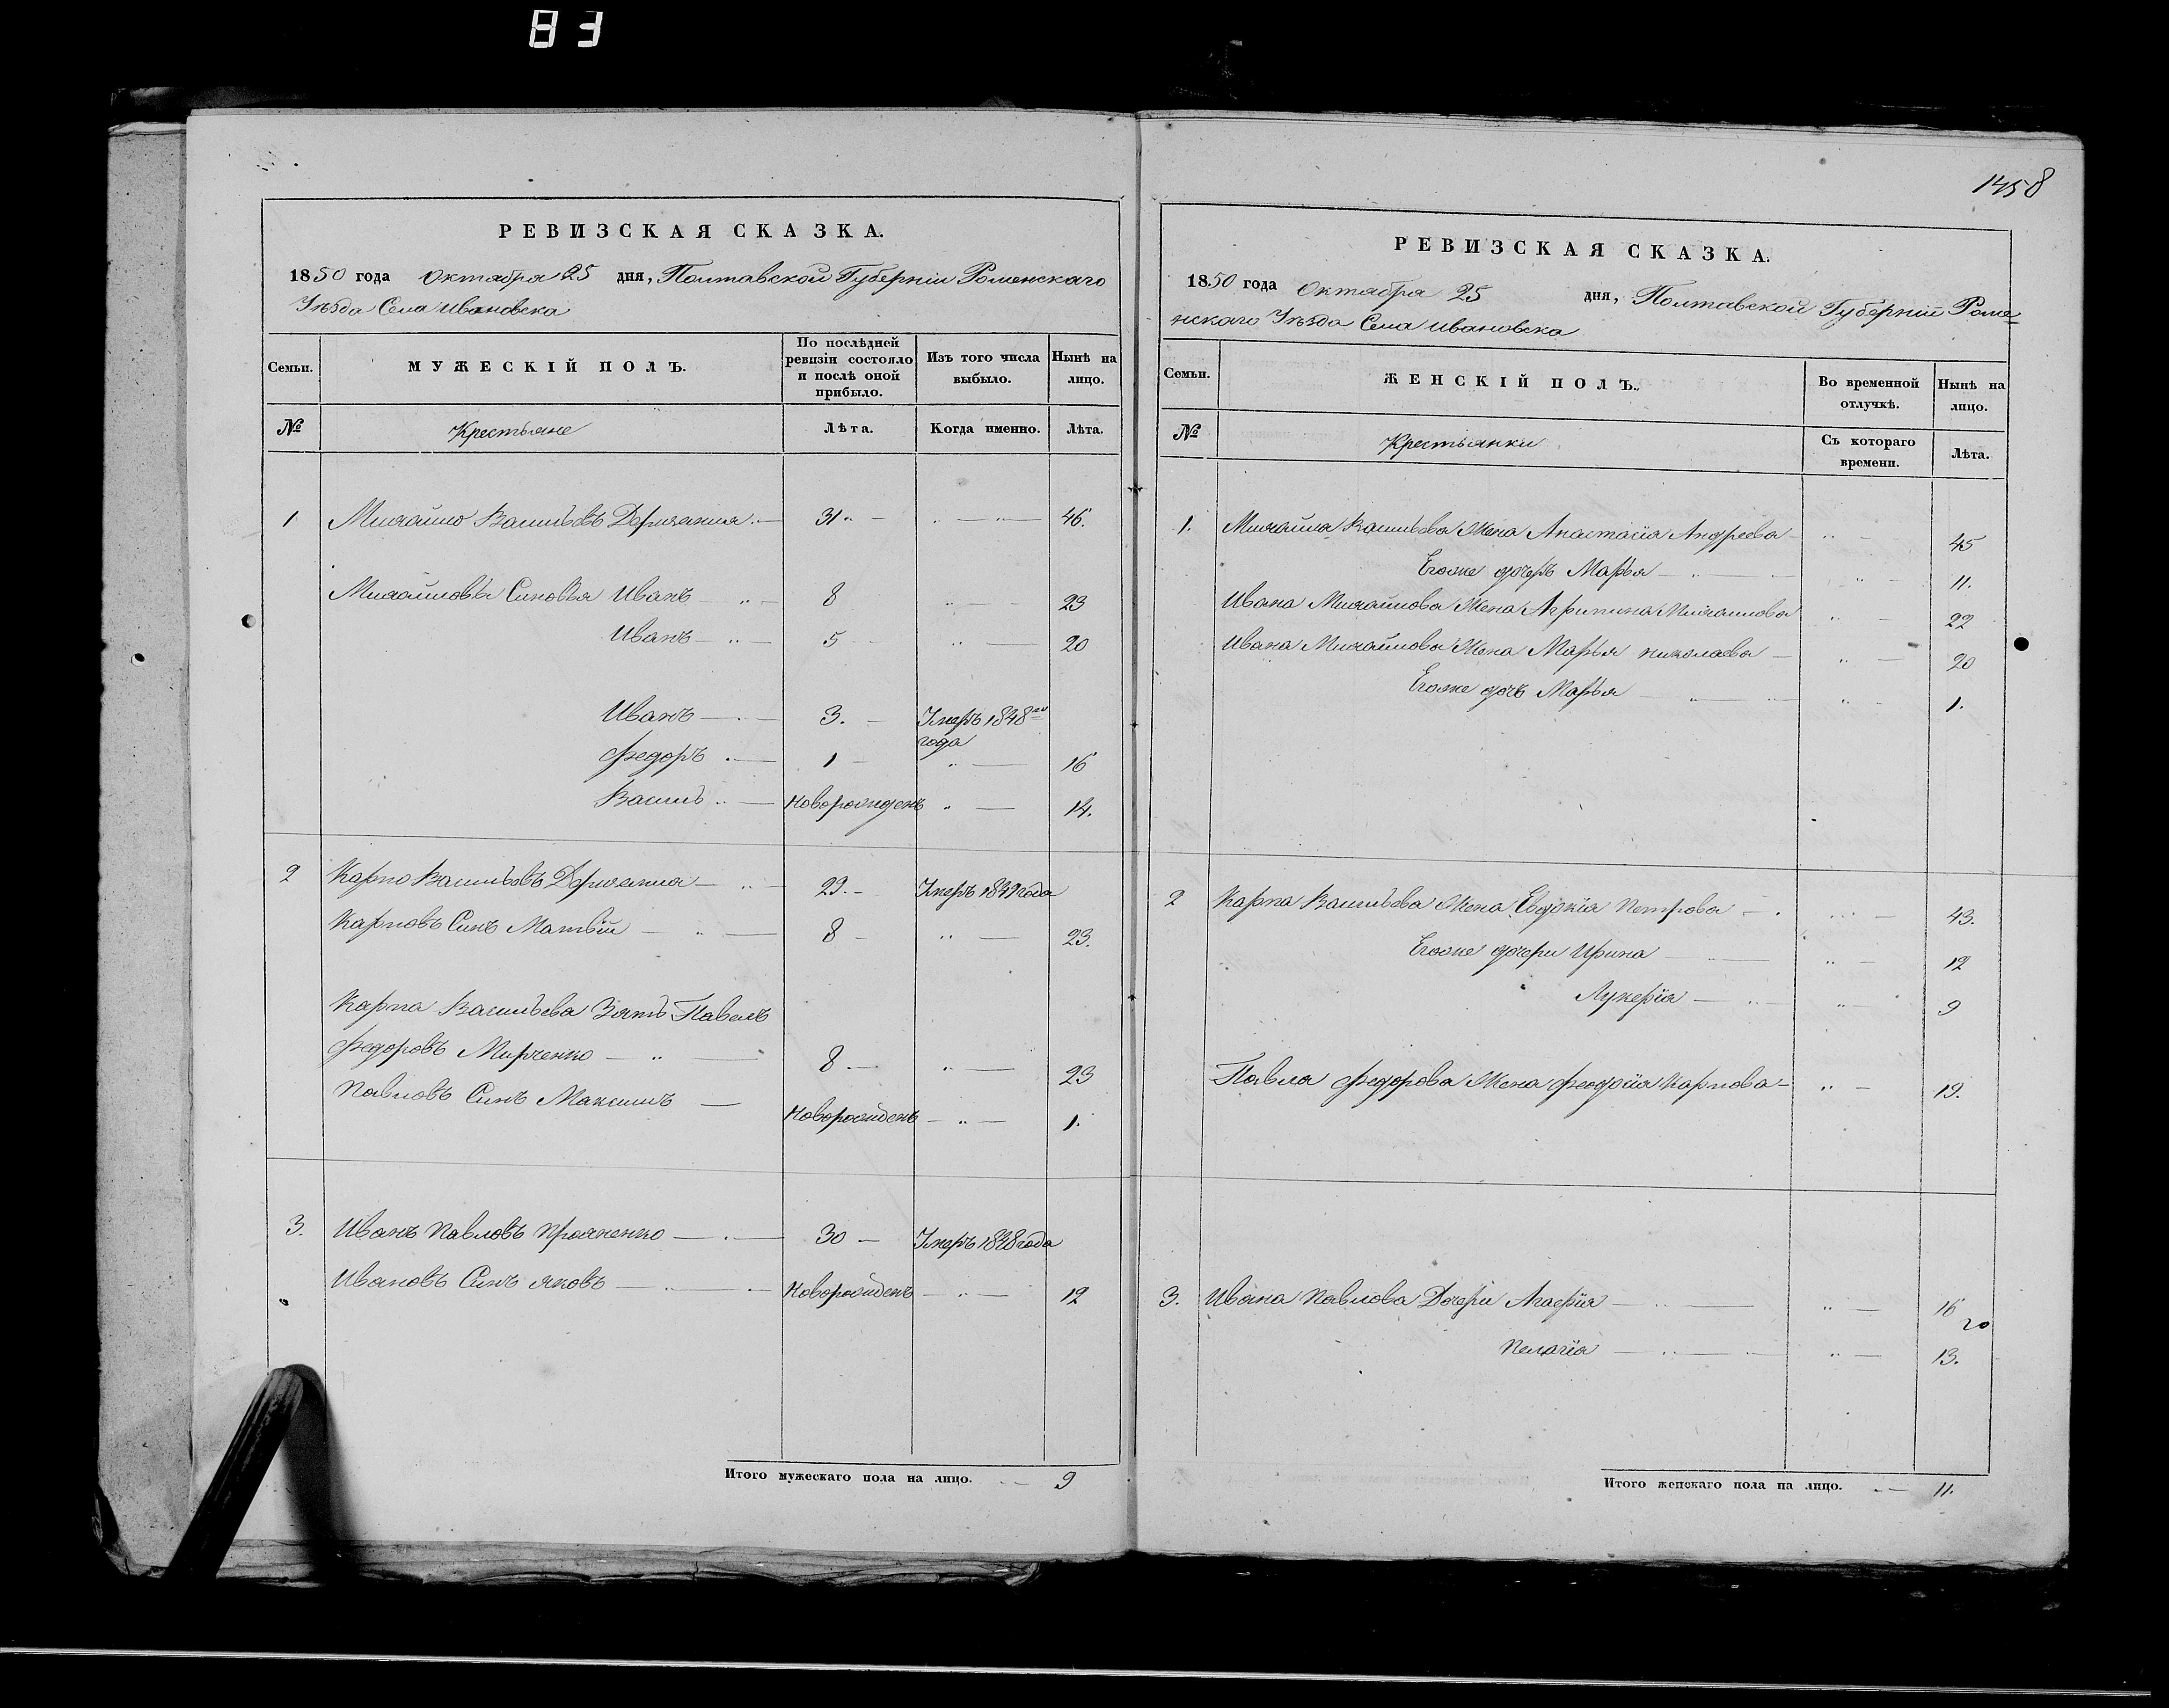 83
1458
РЕВИЗСКАЯ СКАЗКА.
1850 года Октября 25 дня, Полтавской Губерніи Роменскаго
Уѣзда Села Ивановска
Семьи.
МУЖЕСКІЙ ПОЛЪ.
По послѣдней ревизіи состояло и послѣ оной прибыло.
Изъ того числа выбыло.
Нынѣ на лицо.
№ Крестьяне Лѣта. Когда именно. Лѣта.
1 Михайло Васильевъ 31 46.
Михайловы Синовья Иванъ 8 23
Иванъ 5 20
Иванъ 3. Умеръ 1848го года
Федоръ 1 16
Василь новорожденъ 14.
2 Карпо Васильевъ 29. Умеръ 1849 года
Карповъ Синъ Матвій 8 23.
Карпа Васильева Зять Павелъ
Федоровъ Мирченко 8 23
Павловъ Синъ Максимъ Новорожденъ 1.
3. Иванъ Павловъ 30 Умеръ 1848 года
Ивановъ Синъ Яковъ Новорожденъ 12
Итого мужескаго пола на лицо. 9
РЕВИЗСКАЯ СКАЗКА.
1850 года Октября 25 дня, Полтавской Губерніи Роме-
нскаго Уѣзда Села Ивановска
Семьи.
ЖЕНСКІЙ ПОЛЪ.
Во временной отлучкѣ.
Нынѣ на лицо.
№ Крестьянки Съ котораго времени. Лѣта.
1. Михайла Васильева Жена Анастасія Андреева 45
Егоже дочеръ Марья 11.
Ивана Михайлова Жена Агрипина Михайлова 22
Ивана Михайлова Жена Марья Николаева 20
Егоже дочь Марья 1.
2 Карпа Васильева Жена Евдокія Петрова 43.
Егоже дочери Ирина 12
Лукерія 9
Павла Федорова Жена Феодосія Карпова 19.
3. Ивана Павлова Дочери 16
20
Пелагія 13.
Итого женскаго пола на лицо. 11.